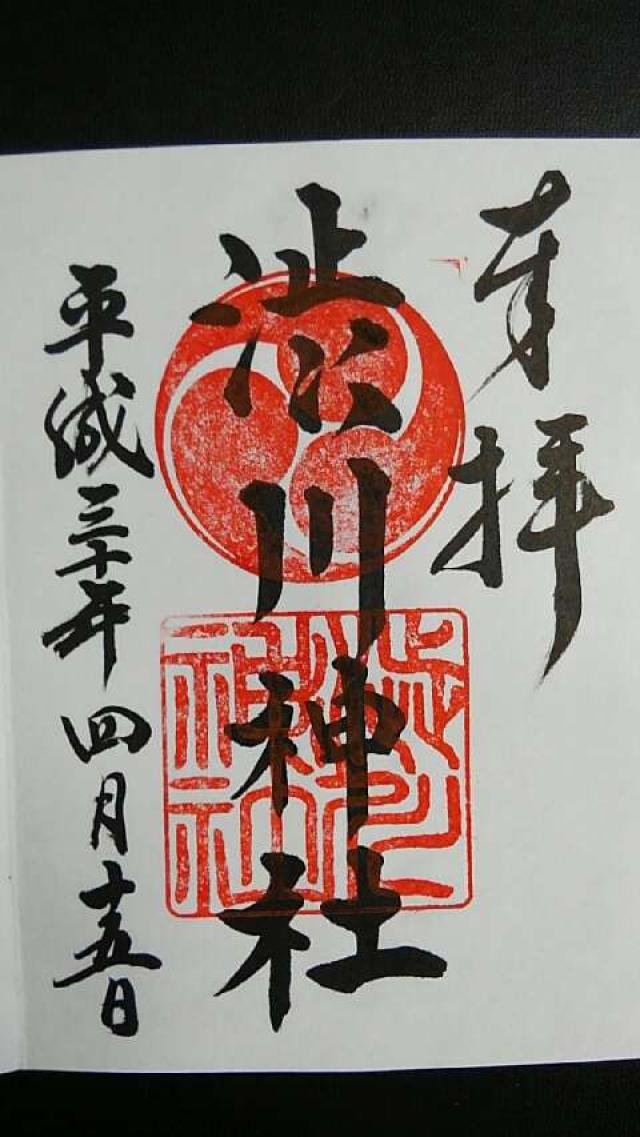 奉拝
渋川神社
平成三十年四月十五日